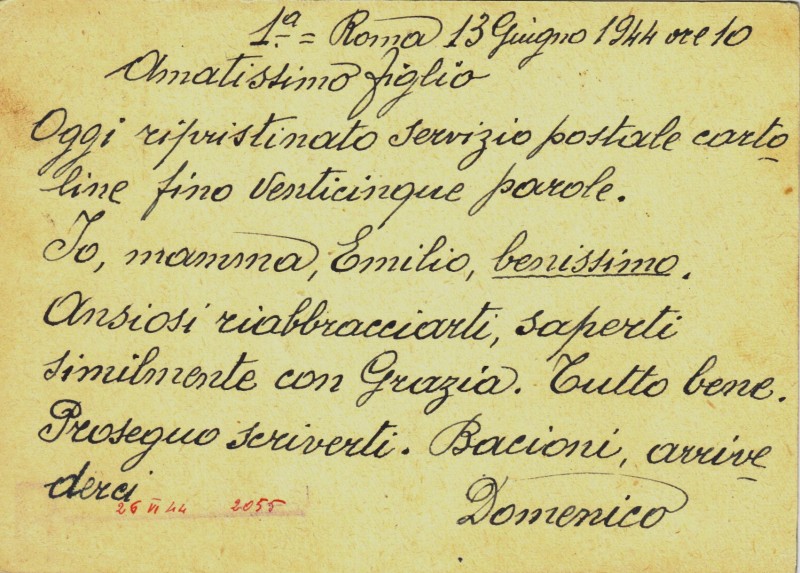 1.ª = Roma 13 Giugno 1944 ore 10
Amatissimo figlio
Oggi ripristinato servizio postale carto-
line fino venticinque parole.
Io, mamma, Emilio, benissimo.
Ansiosi riabbracciarti, saperti
similmente con Grazia. Tutto bene.
Proseguo scriverti. Bacioni, arrive
derci
26 VI 44 2055
Domenico